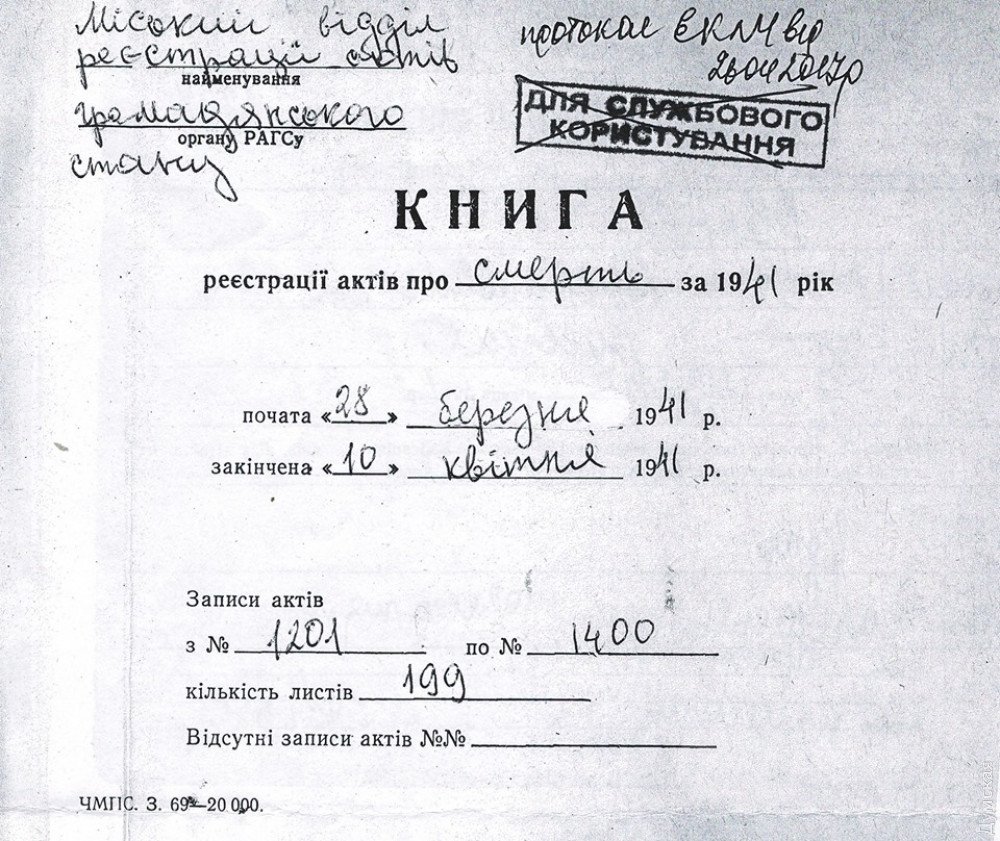 Міський відділ
реєстрації актів
найменування
громадянського
органу РАГСу
стану
протокол ЕКЛЧ від
26042017р
ДЛЯ СЛУЖБОВОГО
КОРИСТУВАННЯ
КНИГА
реєстрації актів про смерть за 1941 рік
почата «28» березня 1941 р.
закінчена «10» квітня 1941 р.
Записи актів
з № 1201 по № 1400
кількість листів 199
Відсутні записи актів №№
ЧМПС. З. 69—20 000.
Думская